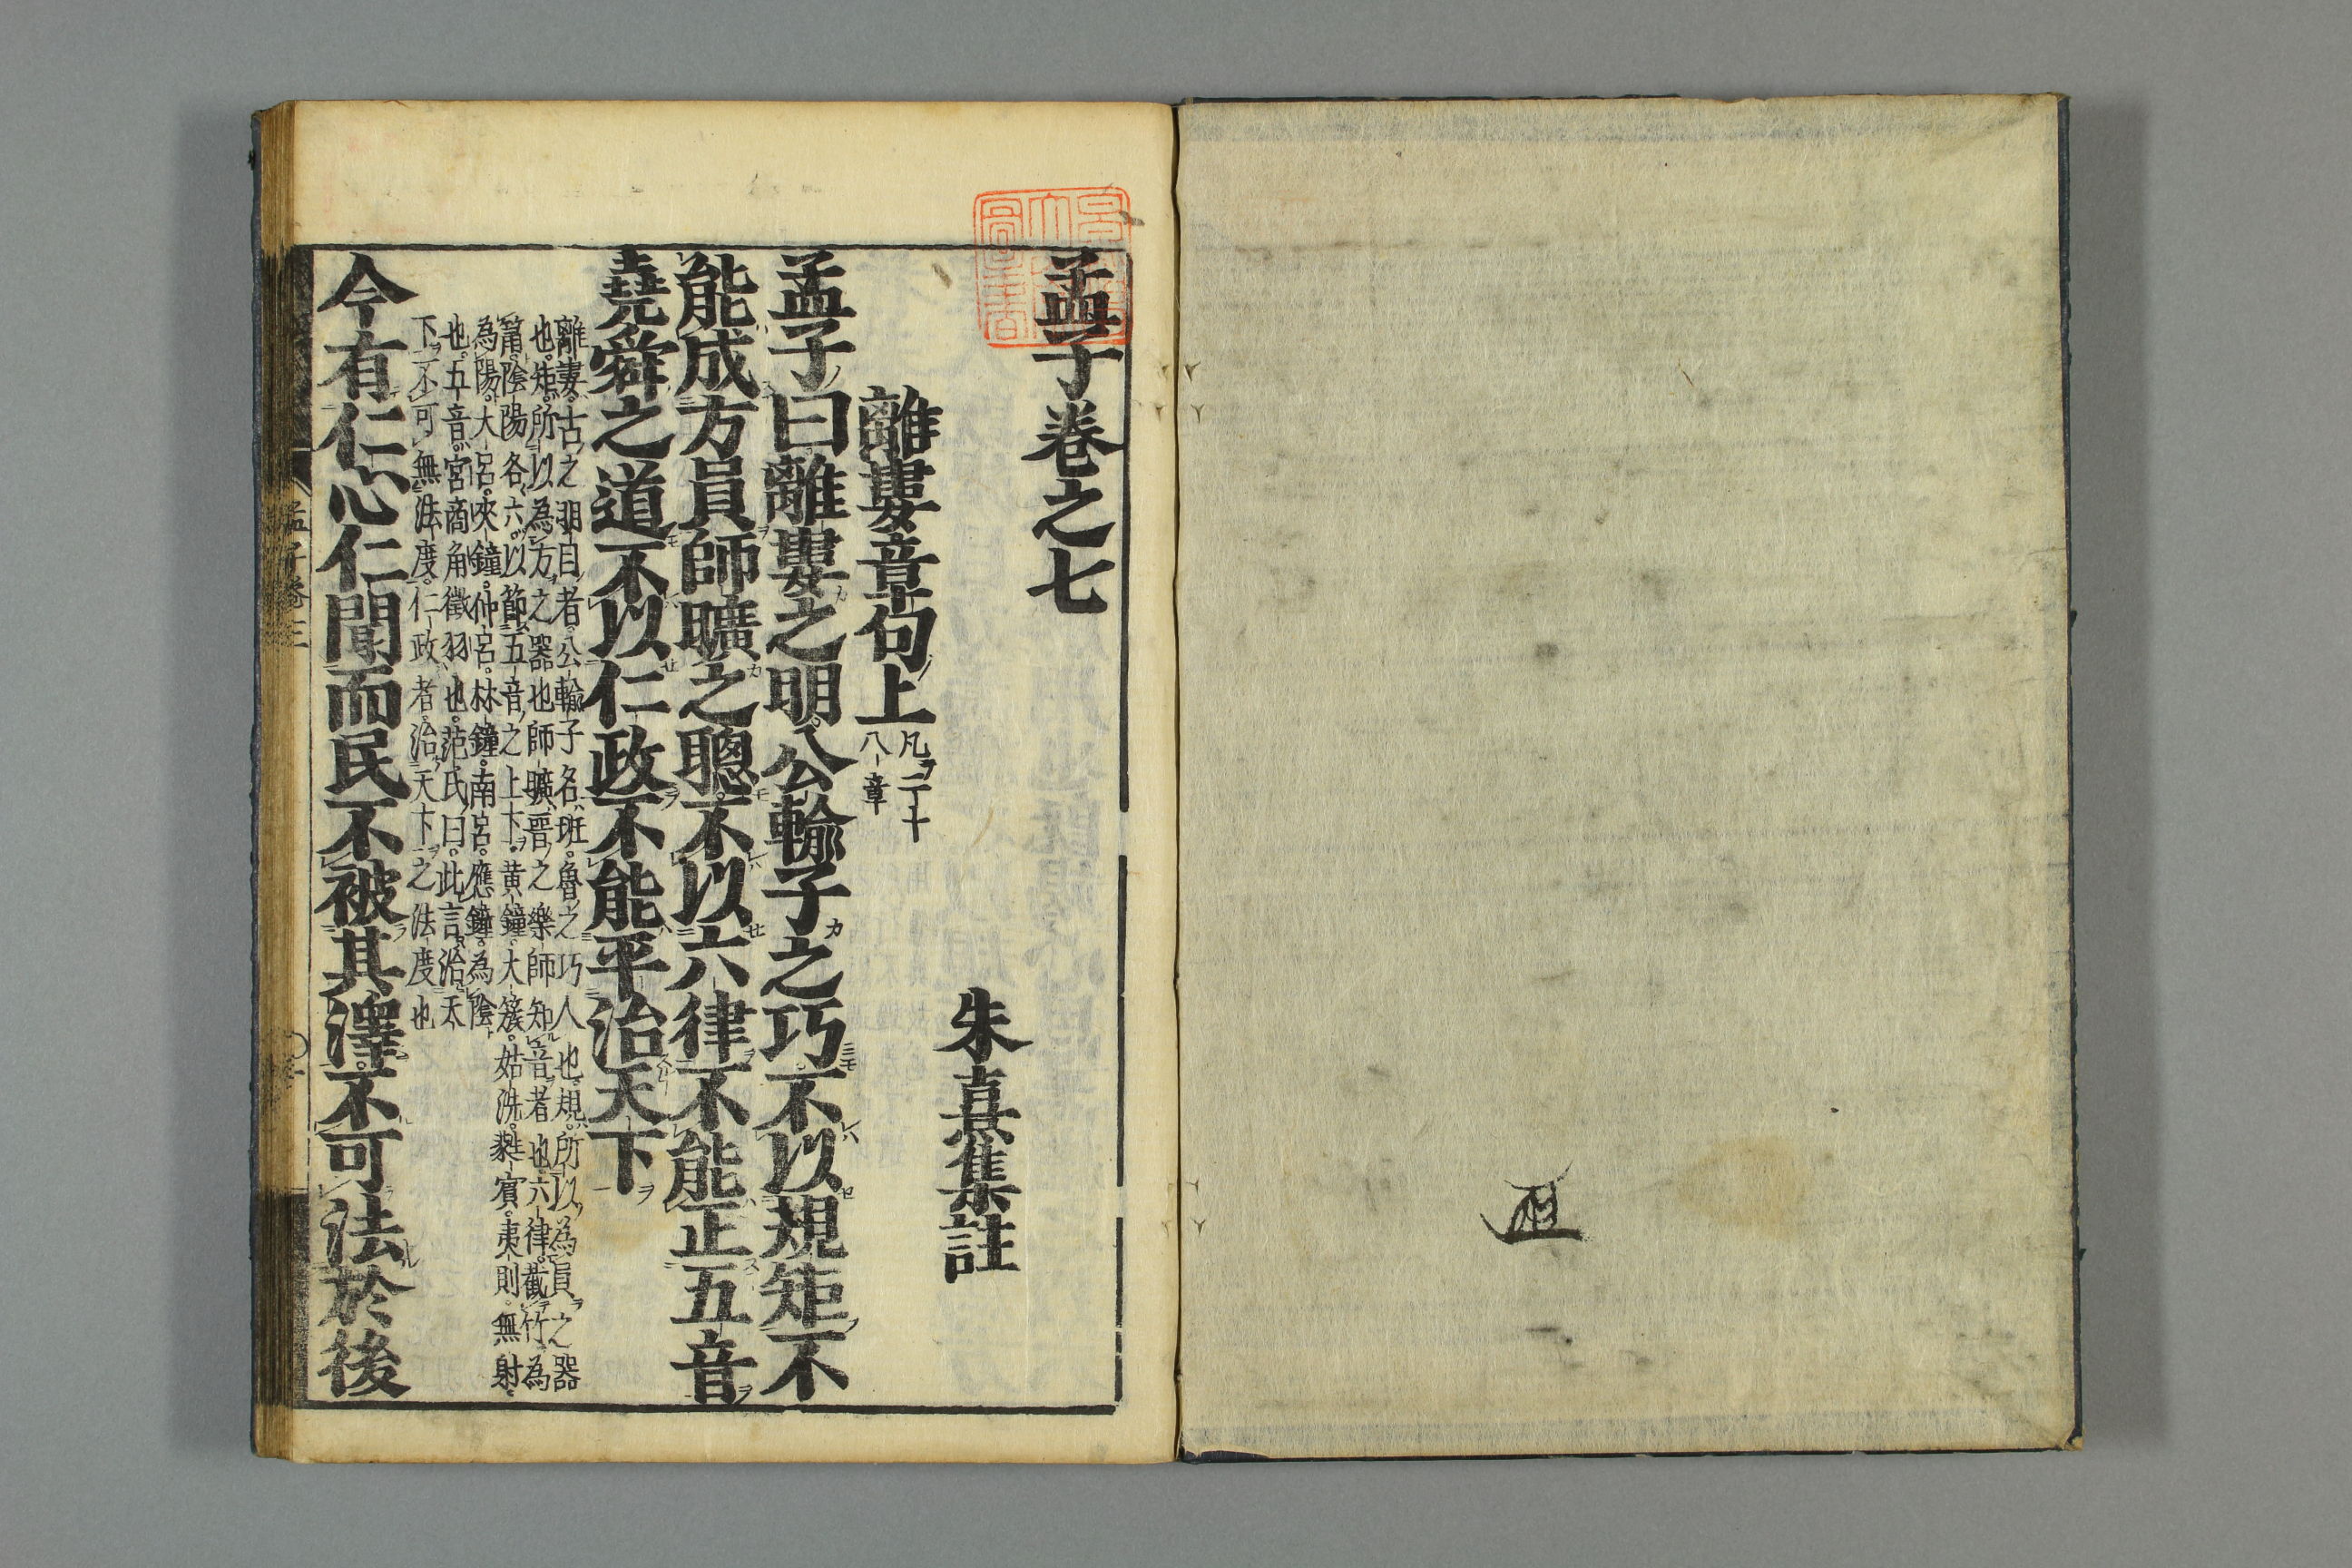 孟子卷之七
朱熹集註
離婁章句上
凡二十
八章
孟子曰離婁之明公輸子之巧不以規矩不
能成方員師曠之聰不以六律不能正五音
堯舜之道不以仁政不能平治天下
離婁古之明目者公輸子名班魯之巧人也規所以為員之器
也矩所以為方之器也師曠晉之樂師知音者也六律截竹為
筩陰陽各六以節五音之上下黃鐘大簇姑洗蕤賓夷則無射
為陽大呂夾鐘仲呂林鐘南呂應鐘為陰
也五音宮商角徵羽也范氏曰此言治天
下不可無法度仁政者治天下之法度也
今有仁心仁聞而民不被其澤不可法於後